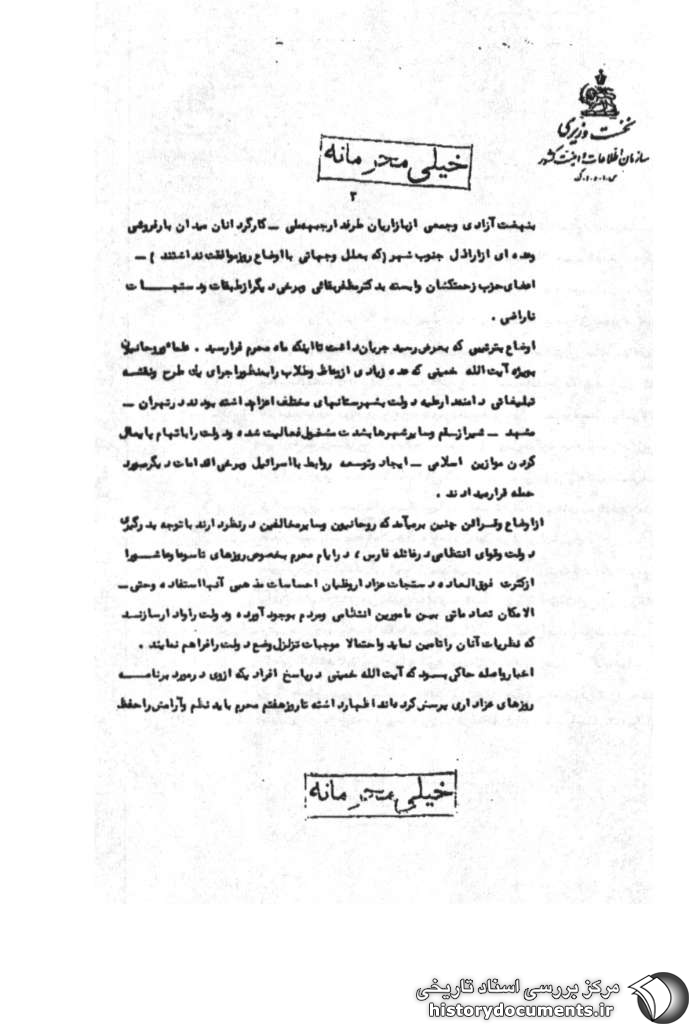 نخست وزیری
سازمان اطلاعات و امنیت کشور
س.ا.و.ا.ک
خیلی محرمانه
۲
بنهضت آزادی وجمعی ازبازاریان طرفدارجبهه‌ملی – کارگردانان میدان بارفروشی
وعده ای ازاراذل جنوب شهر (که بعلل وجهاتی بااوضاع روزموافقت نداشتند ) –
اعضای‌حزب زحمتکشان وابسته بدکترمظفربقائی وبرخی دیگرازطبقات ودستجات
ناراضی .
اوضاع بترتیبی که بعرض رسید جریان‌داشت تااینکه ماه محرم فرارسید . علماءوروحانیون
بویژه آیت الله خمینی که عده زیادی ازوعاظ وطلاب رابمنظوراجرای یک طرح ونقشه
تبلیغاتی دامنه‌دارعلیه دولت بشهرستانهای مختلف اعزام‌داشته بودند درتهران –
مشهد – شیراز‌‌ ‌قم وسایرشهرهابشدت مشغول‌فعالیت شده ودولت راباتهام پایمال
کردن موازین اسلامی – ایجاد وتوسعه روابط بااسرائیل وبرخی‌اقدامات دیگرمورد
حمله قرارمیدادند .
ازاوضاع وقرائن چنین برمیآمدکه روحانیون وسایرمخالفین درنظردارند باتوجه بدرگیری
دولت وقوای انتظامی‌درغائله فارس ، درایام محرم بخصوص روزهای تاسوعا وعاشورا
ازکثرت فوق‌العاده دستجات عزادار‌وغلیان احساسات مذهبی آنهااستفاده وحتی –
الامکان تصادماتی بین مامورین انتظامی ومردم بوجودآورده ودولت راوادارسازند
که نظریات آنان راتامین نماید واحتمالا موجبات تزلزل وضع دولت رافراهم نمایند .
اخبارواصله حاکی بود که آیت الله خمینی درپاسخ افراد یکه ازوی درمورد برنامه
روزهای عزاداری پرسش‌کرده‌اند اظهارداشته تاروزهفتم محرم باید نظم وآرامش راحفظ
خیلی محرمانه
مرکز بررسی اسناد تاریخی
historydocuments.ir